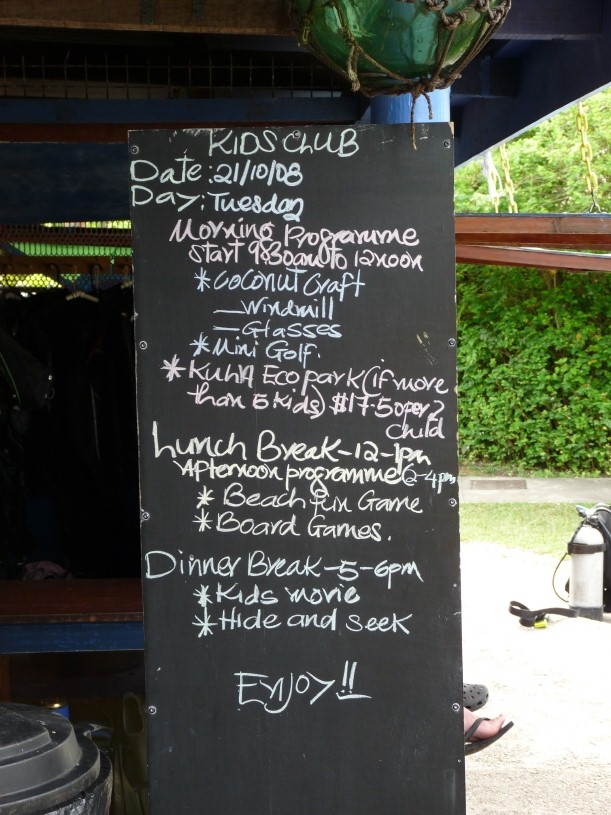 KIDS CLUB
Date: 21/10/08
Day: Tuesday
Morning Programme
start 9:30am to 12noon
*Coconut Craft
—Windmill
—Glasses
*Mini Golf.
*Kuha Eco park (if more
than 5 kids) $17.50 per
child
Lunch Break-12-1pm
Afternoon programme 2-4pm
* Beach fun Game
* Board Games.
Dinner Break-5-6pm
*Kids movie
*Hide and seek
Enjoy!!